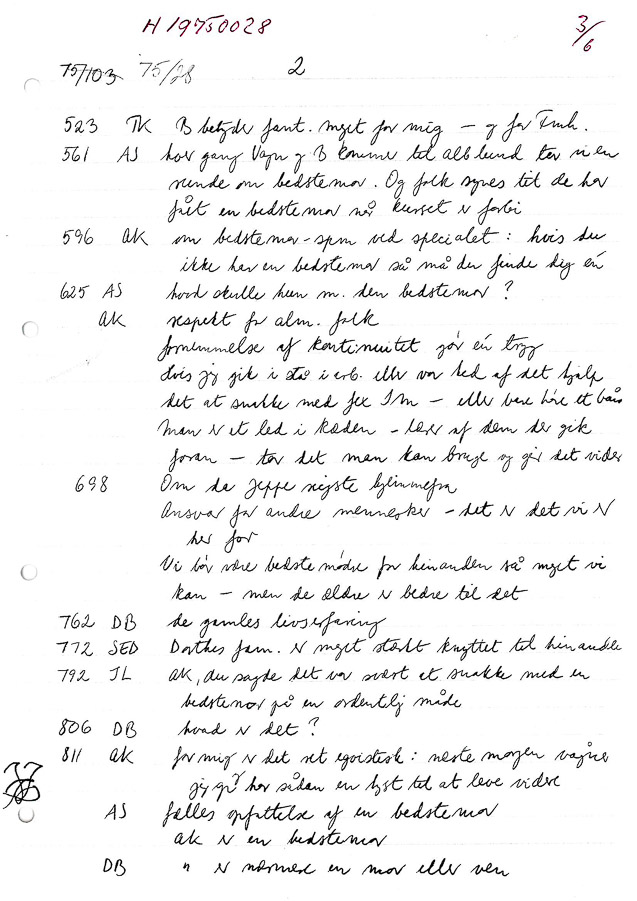 H 19750028
3/6
75/103 75/28 2
523 TK B betyder fant. meget for mig — og for
561 AS hver gang Vagn og B kommer til alblund tar vi en
runde om bedstemor. Og folk synes tit de har
fået en bedstemor når kurset er forbi
596 AK om bedstemor-spm ved specialet: hvis du
ikke har en bedstemor så må du finde dig én
625 AS hvad skulle hun m. den bedstemor?
AK respekt for alm. folk
fornemmelse af kontinuitet gør én tryg
hvis jeg gik i stå i arb. eller var led af det hjalp
det at snakke med fex — eller bare høre et bånd
man er et led i kæden - lærer af dem der gik
foran — tar det man kan bruge og gir det videre
698 Om da Jeppe rejste hjemmefra
Ansvar for andre mennesker - det er det vi er
her for
Vi bør være bedstemødre for hinanden så meget vi
kan — men de ældre er bedre til det
762 DB de gamles livserfaring
772 SED Dorthes fam. er meget stærkt knyttet til hinanden
792 JL AK, du sagde det var svært at snakke med en
bedstemor på en ordentlig måde
806 DB hvad er det?
811 AK for mig er det ret egoistisk: næste morgen vågner
jeg op? har sådan en lyst til at leve videre
AS fælles opfattelse af en bedstemor
AK er en bedstemor
DB " er nærmere en mor eller ven